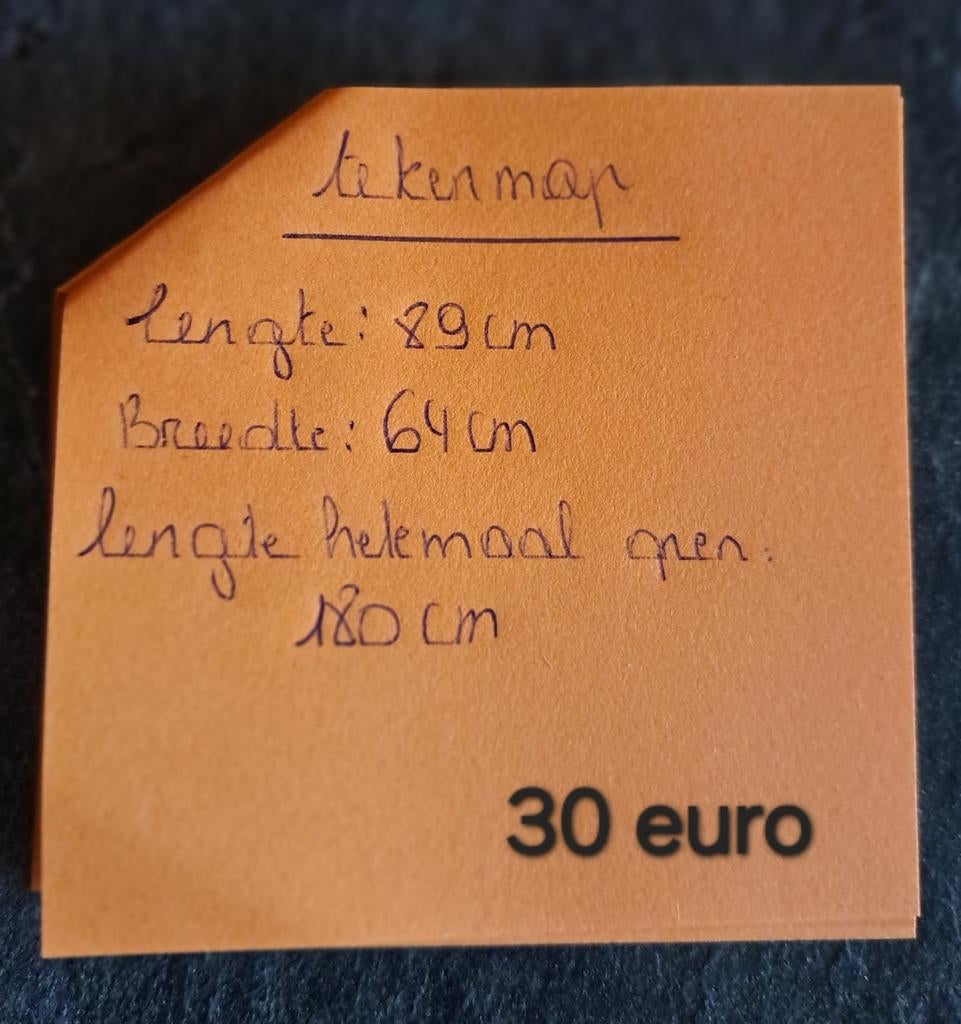 tekenmap
lengte: 89 cm
Breedte: 64 cm
lengte helemaal open:
180 cm
30 euro